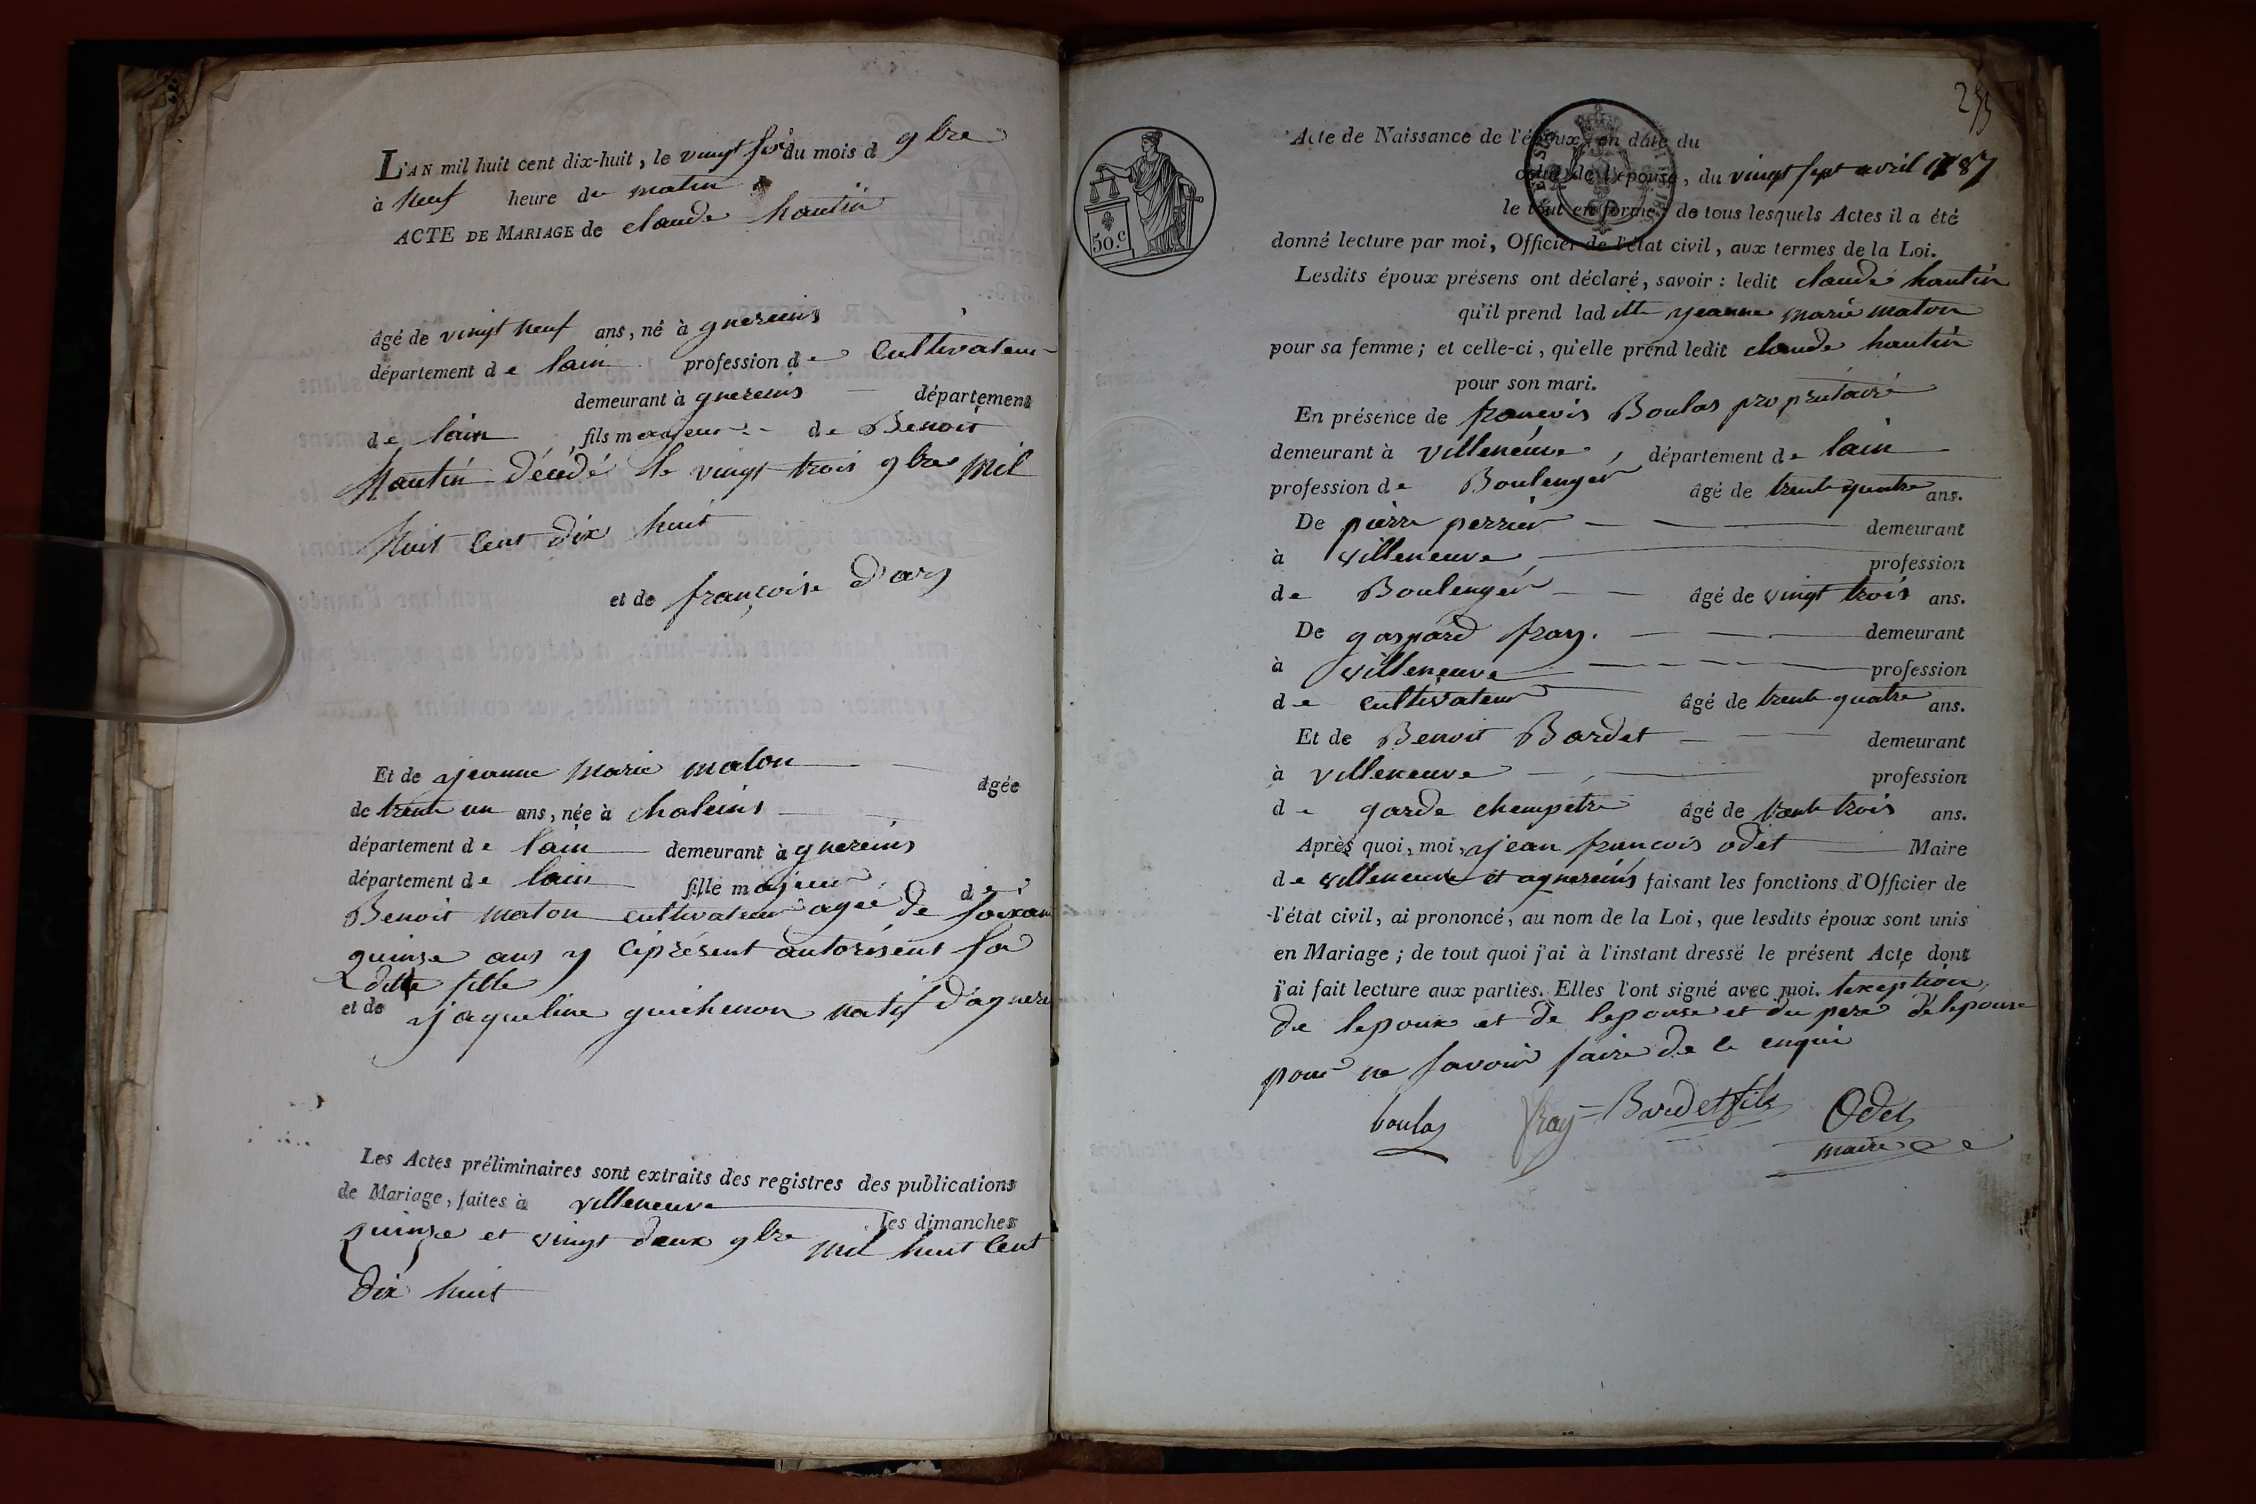 L'AN mil huit cent dix-huit, le vingt six du mois d 9bre
à neuf heure du matin
ACTE DE MARIAGE de claude hautin
âgé de vingt neuf ans, né à gnereins
département de lain profession de cultivateur
demeurant à gnereins département
de lain fils majeur de Benoit
hautin décédé le vingt trois 9bre mil
huit cent dix huit
et de françoise d'ars
Et de jeanne marie maton
âgée
de trente un ans, née à chaleins
département de lain demeurant à gnereins
département de lain fille majeur de
Benoit maton cultivateur agée de soixan
quinze ans y ciprésent autorisent sa
ditte fille
et de jaqueline guichenon natif d'agnere
Les Actes préliminaires sont extraits des registres des publications
de Mariage, faites à villeneuve les dimanches
quinze et vingt deux 9bre mil huit cent
dix huit
233
Acte de Naissance de l'époux, en date du
celui de l'épouse, du vingt sept avril 1787
le tout en forme; de tous lesquels Actes il a été
donné lecture par moi, Officier de l'état civil, aux termes de la Loi.
50.c
Lesdits époux présens ont déclaré, savoir : ledit claude hautin
qu'il prend laditte jeanne marie maton
pour sa femme; et celle-ci, qu'elle prend ledit claude hautin
pour son mari.
En présence de francois Boulas proprietaire
demeurant à villeneuve, département de lain
profession de Boulenger âgé de trente quatre ans.
De pierre perrier demeurant
à villeneuve profession
de Boulenger âgé de vingt trois ans.
De gaspard fray. demeurant
à villeneuve profession
de cultivateur âgé de trente quatre ans.
Et de Benoit Bardet demeurant
à villeneuve profession
de garde chempetre âgé de trente trois ans.
Après quoi, moi, jean francois odet Maire
de villeneuve et agnereins faisant les fonctions d'Officier de
l'état civil, ai prononcé, au nom de la Loi, que lesdits époux sont unis
en Mariage; de tout quoi j'ai à l'instant dressé le présent Acte dont
j'ai fait lecture aux parties. Elles l'ont signé avec moi. lexeption
de lepoux et de lepouse et du pere de lepouse
pour ne savoir faire de ce enquis
boulas fray Bardet fils Odet
maire